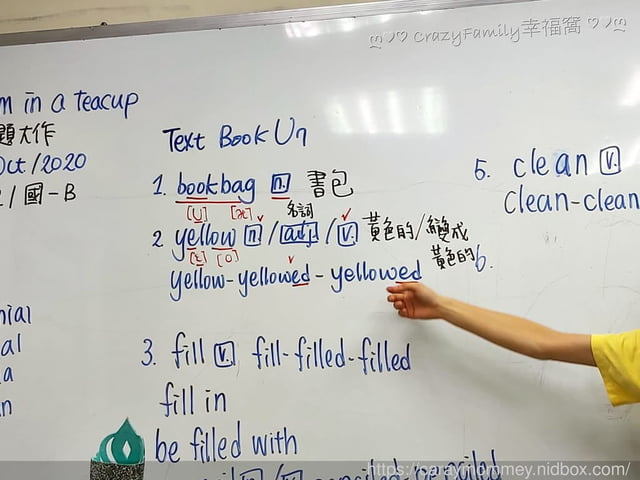 CrazyFamily幸福窩
m in a teacup
題大作
Oct/2020
1/國-B
nial
al
a
n
Text Book U7
1. bookbag n. 書包
[U] [æ] 名詞
2 yellow n / adj / v. 黃色的/變成
[ɛ] [o] 黃色的
yellow-yellowed-yellowed
3. fill v. fill-filled-filled
fill in
be filled with
5. clean v.
clean-clean
6.
https://paraymommey.nidbox.com/